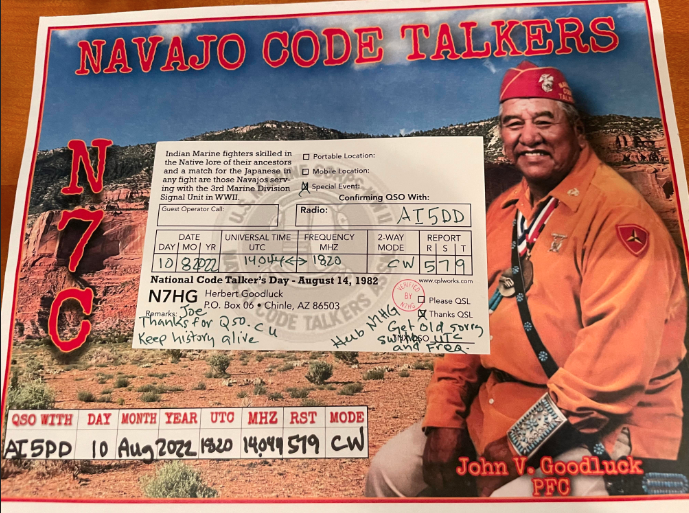 NAVAJO CODE TALKERS
N7C
Indian Marine fighters skilled in
the Native lore of their ancestors
and a match for the Japanese in
any fight are those Navajos serv-
ing with the 3rd Marine Division
Signal Unit in WWII.
Portable Location:
Mobile Location:
Special Event:
Confirming QSO With:
Guest Operator Call:
Radio: AI5DD
DATE UNIVERSAL TIME FREQUENCY 2-WAY REPORT
DAY MO YR UTC MHZ MODE R S T
10 8 2022 14044 <-> 1820 CW 5 7 9
National Code Talker's Day - August 14, 1982
www.qplworks.com
N7HG Herbert Goodluck
P.O. Box 06 • Chinle, AZ 86503
VERIFIED BY N7HG
Please QSL
Thanks QSL
Remarks: Joe
Thanks for QSO. CU
Keep history alive
Hub N7HG
Get old sorry
switch UTC
and Freq.
CODE TALKERS
QSO WITH DAY MONTH YEAR UTC MHZ RST MODE
AI5DD 10 Aug 2022 1820 14,044 579 CW
John V. Goodluck
PFC